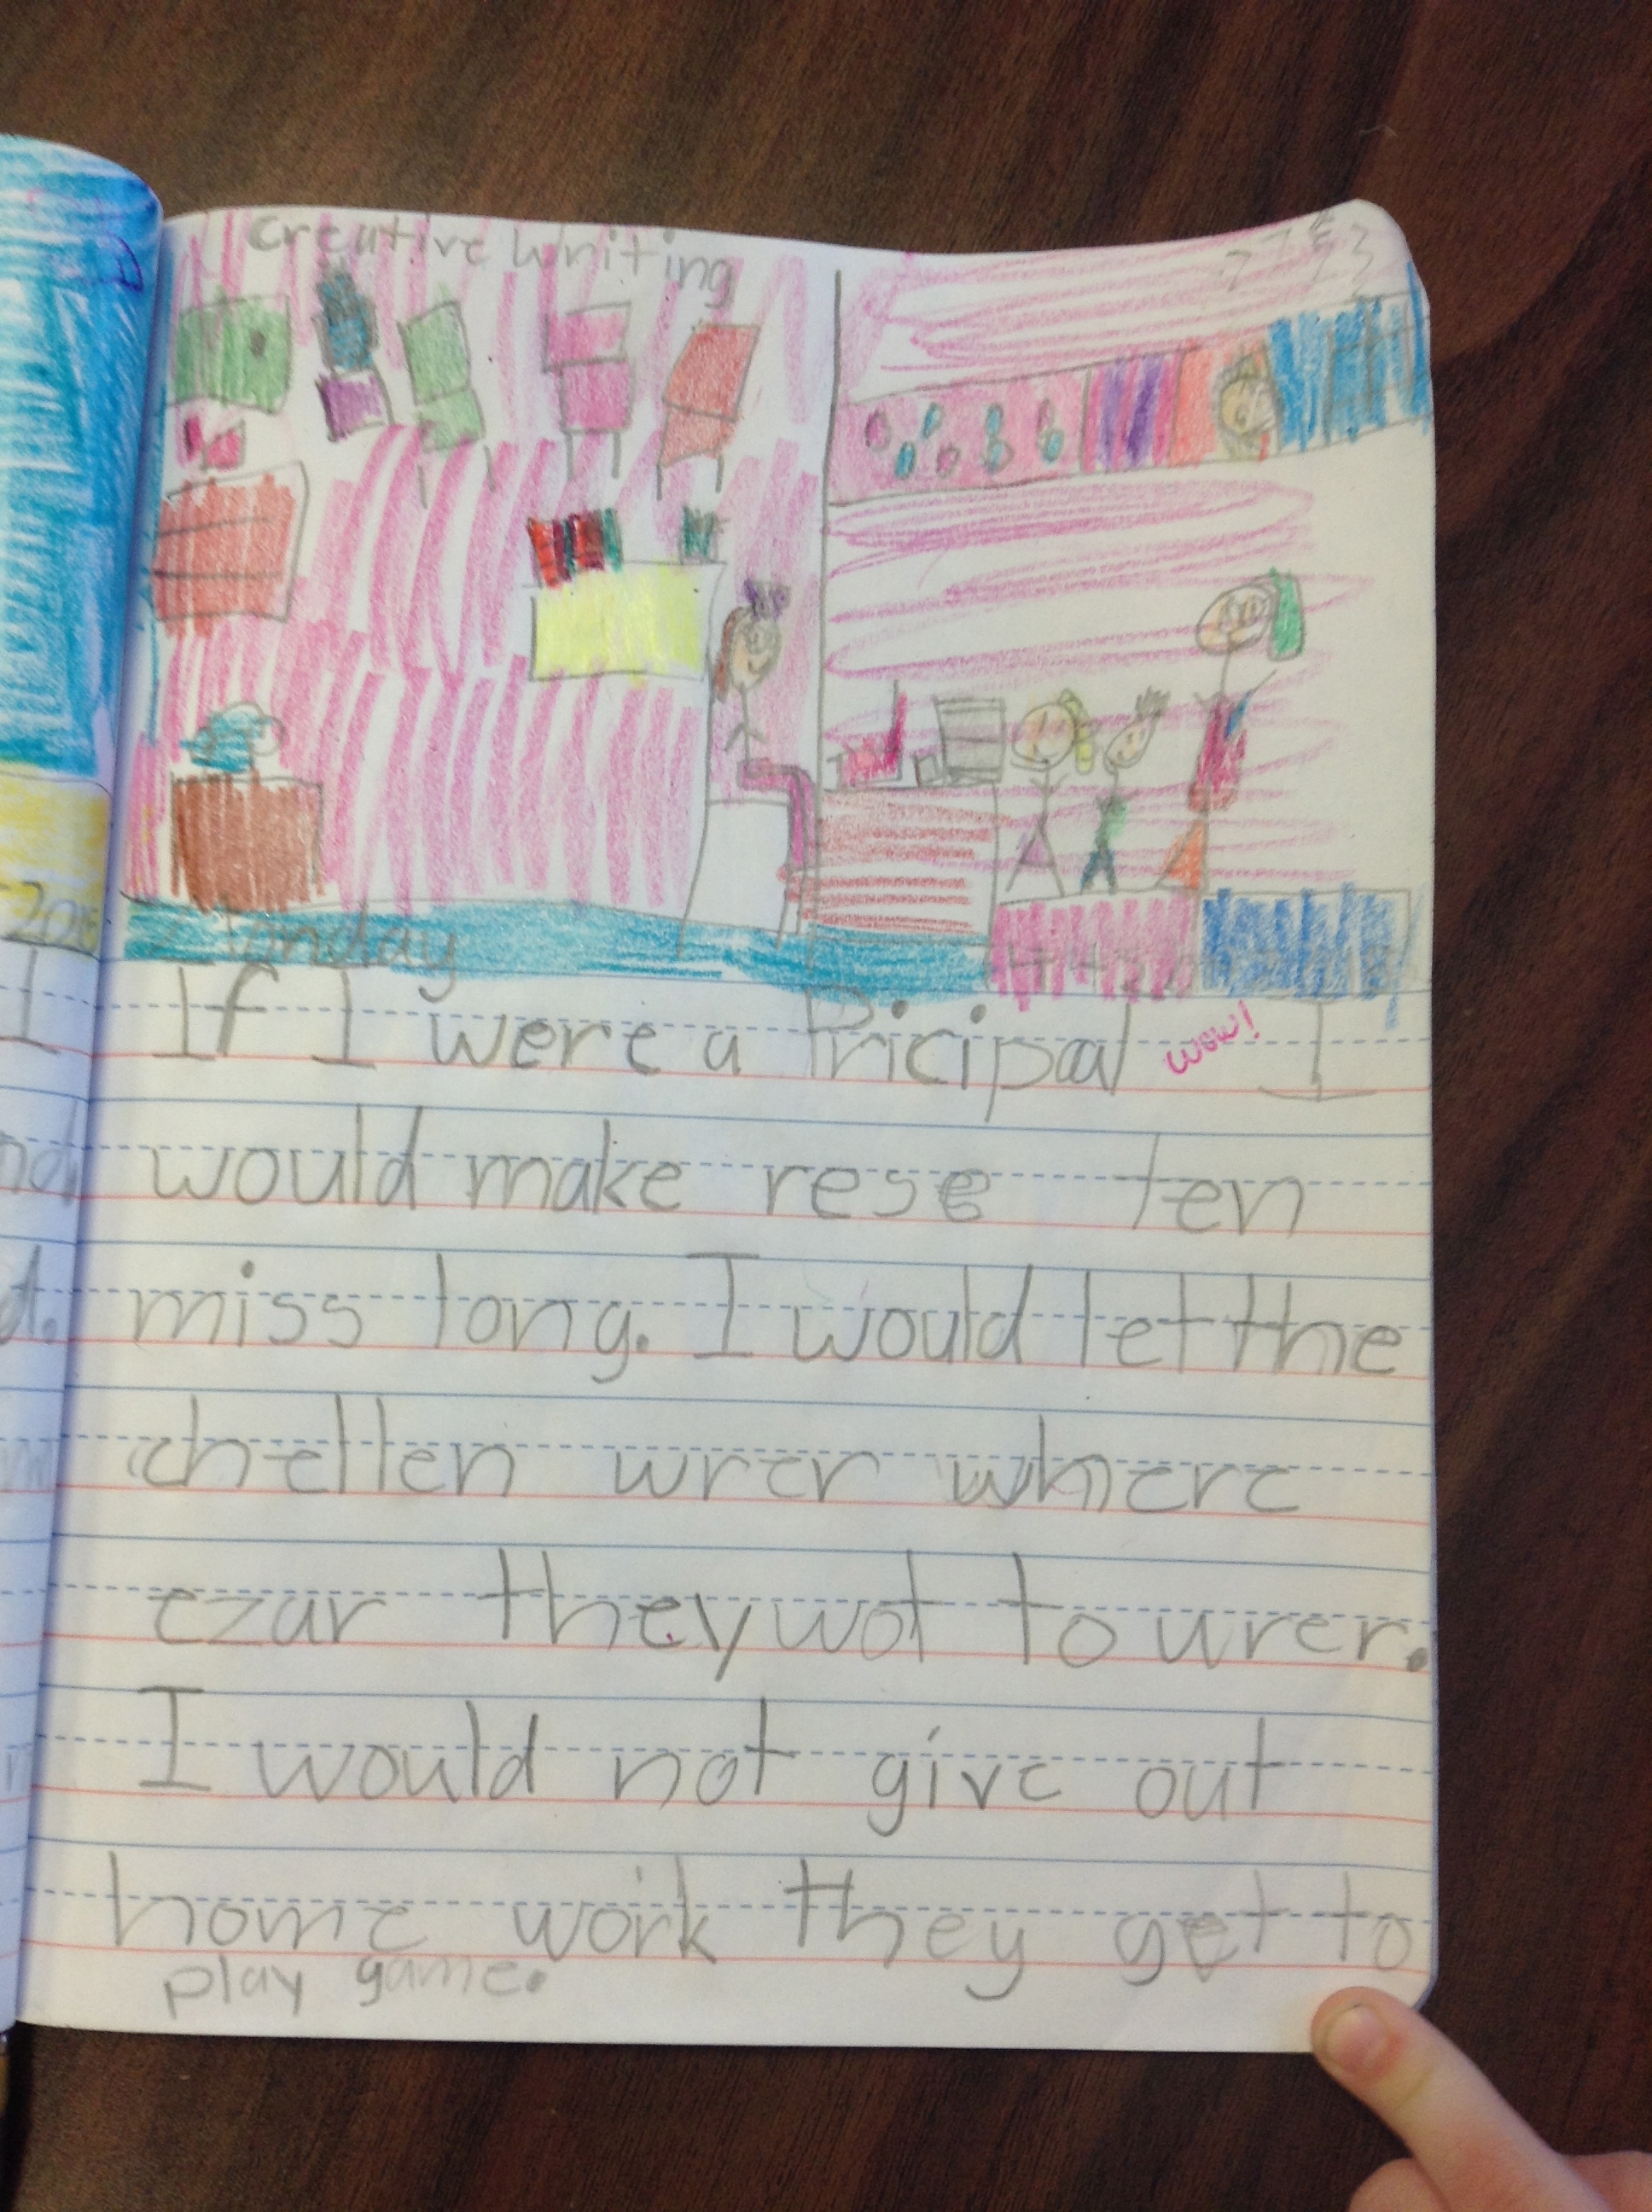 Creative Writing
Monday
If I were a Pricipal wow! I
would make rese ten
miss long. I would let the
chellen wrer where
ezar they wot to urer.
I would not give out
home work they get to
play game.